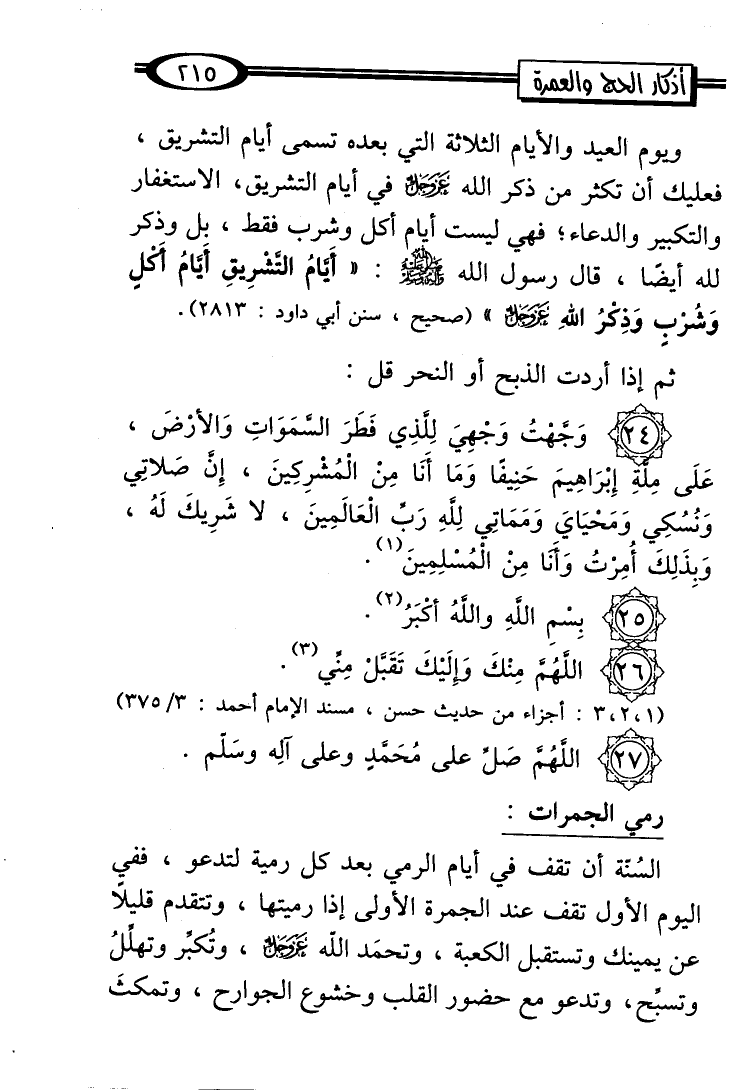 أذكار الحج والعمرة
٢١٥
ويوم العيد والأيام الثلاثة التي بعده تسمى أيام التشريق ،
فعليك أن تكثر من ذكر الله عَزَّوَجَلَّ في أيام التشريق، الاستغفار
والتكبير والدعاء؛ فهي ليست أيام أكل وشرب فقط ، بل وذكر
لله أيضًا ، قال رسول الله ﷺ : « أَيَّامُ التَّشْرِيقِ أَيَّامُ أَكْلٍ
وَشُرْبٍ وَذِكْرُ اللهِ عَزَّوَجَلَّ » (صحيح ، سنن أبي داود : ٢٨١٣).
ثم إذا أردت الذبح أو النحر قل :
٢٤ وَجَّهْتُ وَجْهِيَ لِلَّذِي فَطَرَ السَّمَوَاتِ وَالأرْضَ ،
عَلَى مِلَّةِ إِبْرَاهِيمَ حَنِيفًا وَمَا أَنَا مِنْ الْمُشْرِكِينَ ، إِنَّ صَلاتِي
وَنُسُكِي وَمَحْيَايَ وَمَمَاتِي لِلَّهِ رَبِّ الْعَالَمِينَ ، لا شَرِيكَ لَهُ ،
وَبِذَلِكَ أُمِرْتُ وَأَنَا مِنْ الْمُسْلِمِينَ(١) .
٢٥ بِسْمِ اللَّهِ واللَّهُ أكْبَرُ(٢) .
٢٦ اللَّهُمَّ مِنْكَ وَإِلَيْكَ تَقَبَّلْ مِنِّي(٣) .
(٣،٢،١ : أجزاء من حديث حسن ، مسند الإمام أحمد : ٣٧٥/٣)
٢٧ اللَّهُمَّ صَلِّ على مُحَمَّدٍ وعلى آلِه وسَلّم .
رمي الجمرات :
السُنّة أن تقف في أيام الرمي بعد كل رمية لتدعو ، ففي
اليوم الأول تقف عند الجمرة الأولى إذا رميتها ، وتتقدم قليلًا
عن يمينك وتستقبل الكعبة ، وتحمَد اللّه عَزَّوَجَلَّ ، وتُكبِّر وتهلِّلُ
وتسبِّح، وتدعو مع حضور القلب وخشوع الجوارح ، وتمكثَ